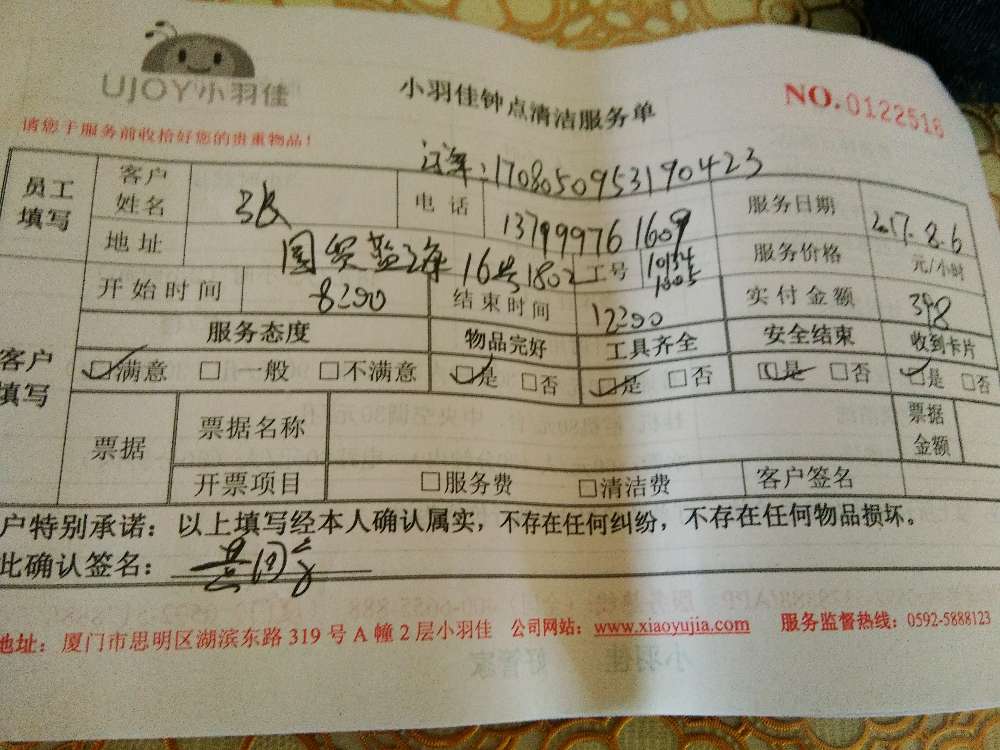 UJOY小羽佳
小羽佳钟点清洁服务单
NO.0122518
请您于服务前收拾好您的贵重物品!
170805095319 0423
员工填写 客户姓名 电话 13799976 1609 服务日期 2017.8.6
地址 国贸蓝海 16号1802 工号 服务价格 元/小时
开始时间 8:00 结束时间 12:00 实付金额 398
客户填写 服务态度 物品完好 工具齐全 安全结束 收到卡片
☑满意 □一般 □不满意 ☑是 □否 ☑是 □否 ☑是 □否 ☑是 □否
票据 票据名称 票据金额
开票项目 □服务费 □清洁费 客户签名
户特别承诺：以上填写经本人确认属实，不存在任何纠纷，不存在任何物品损坏。
此确认签名：
地址：厦门市思明区湖滨东路 319 号 A 幢 2 层小羽佳 公司网站：www.xiaoyujia.com 服务监督热线：0592-5888123